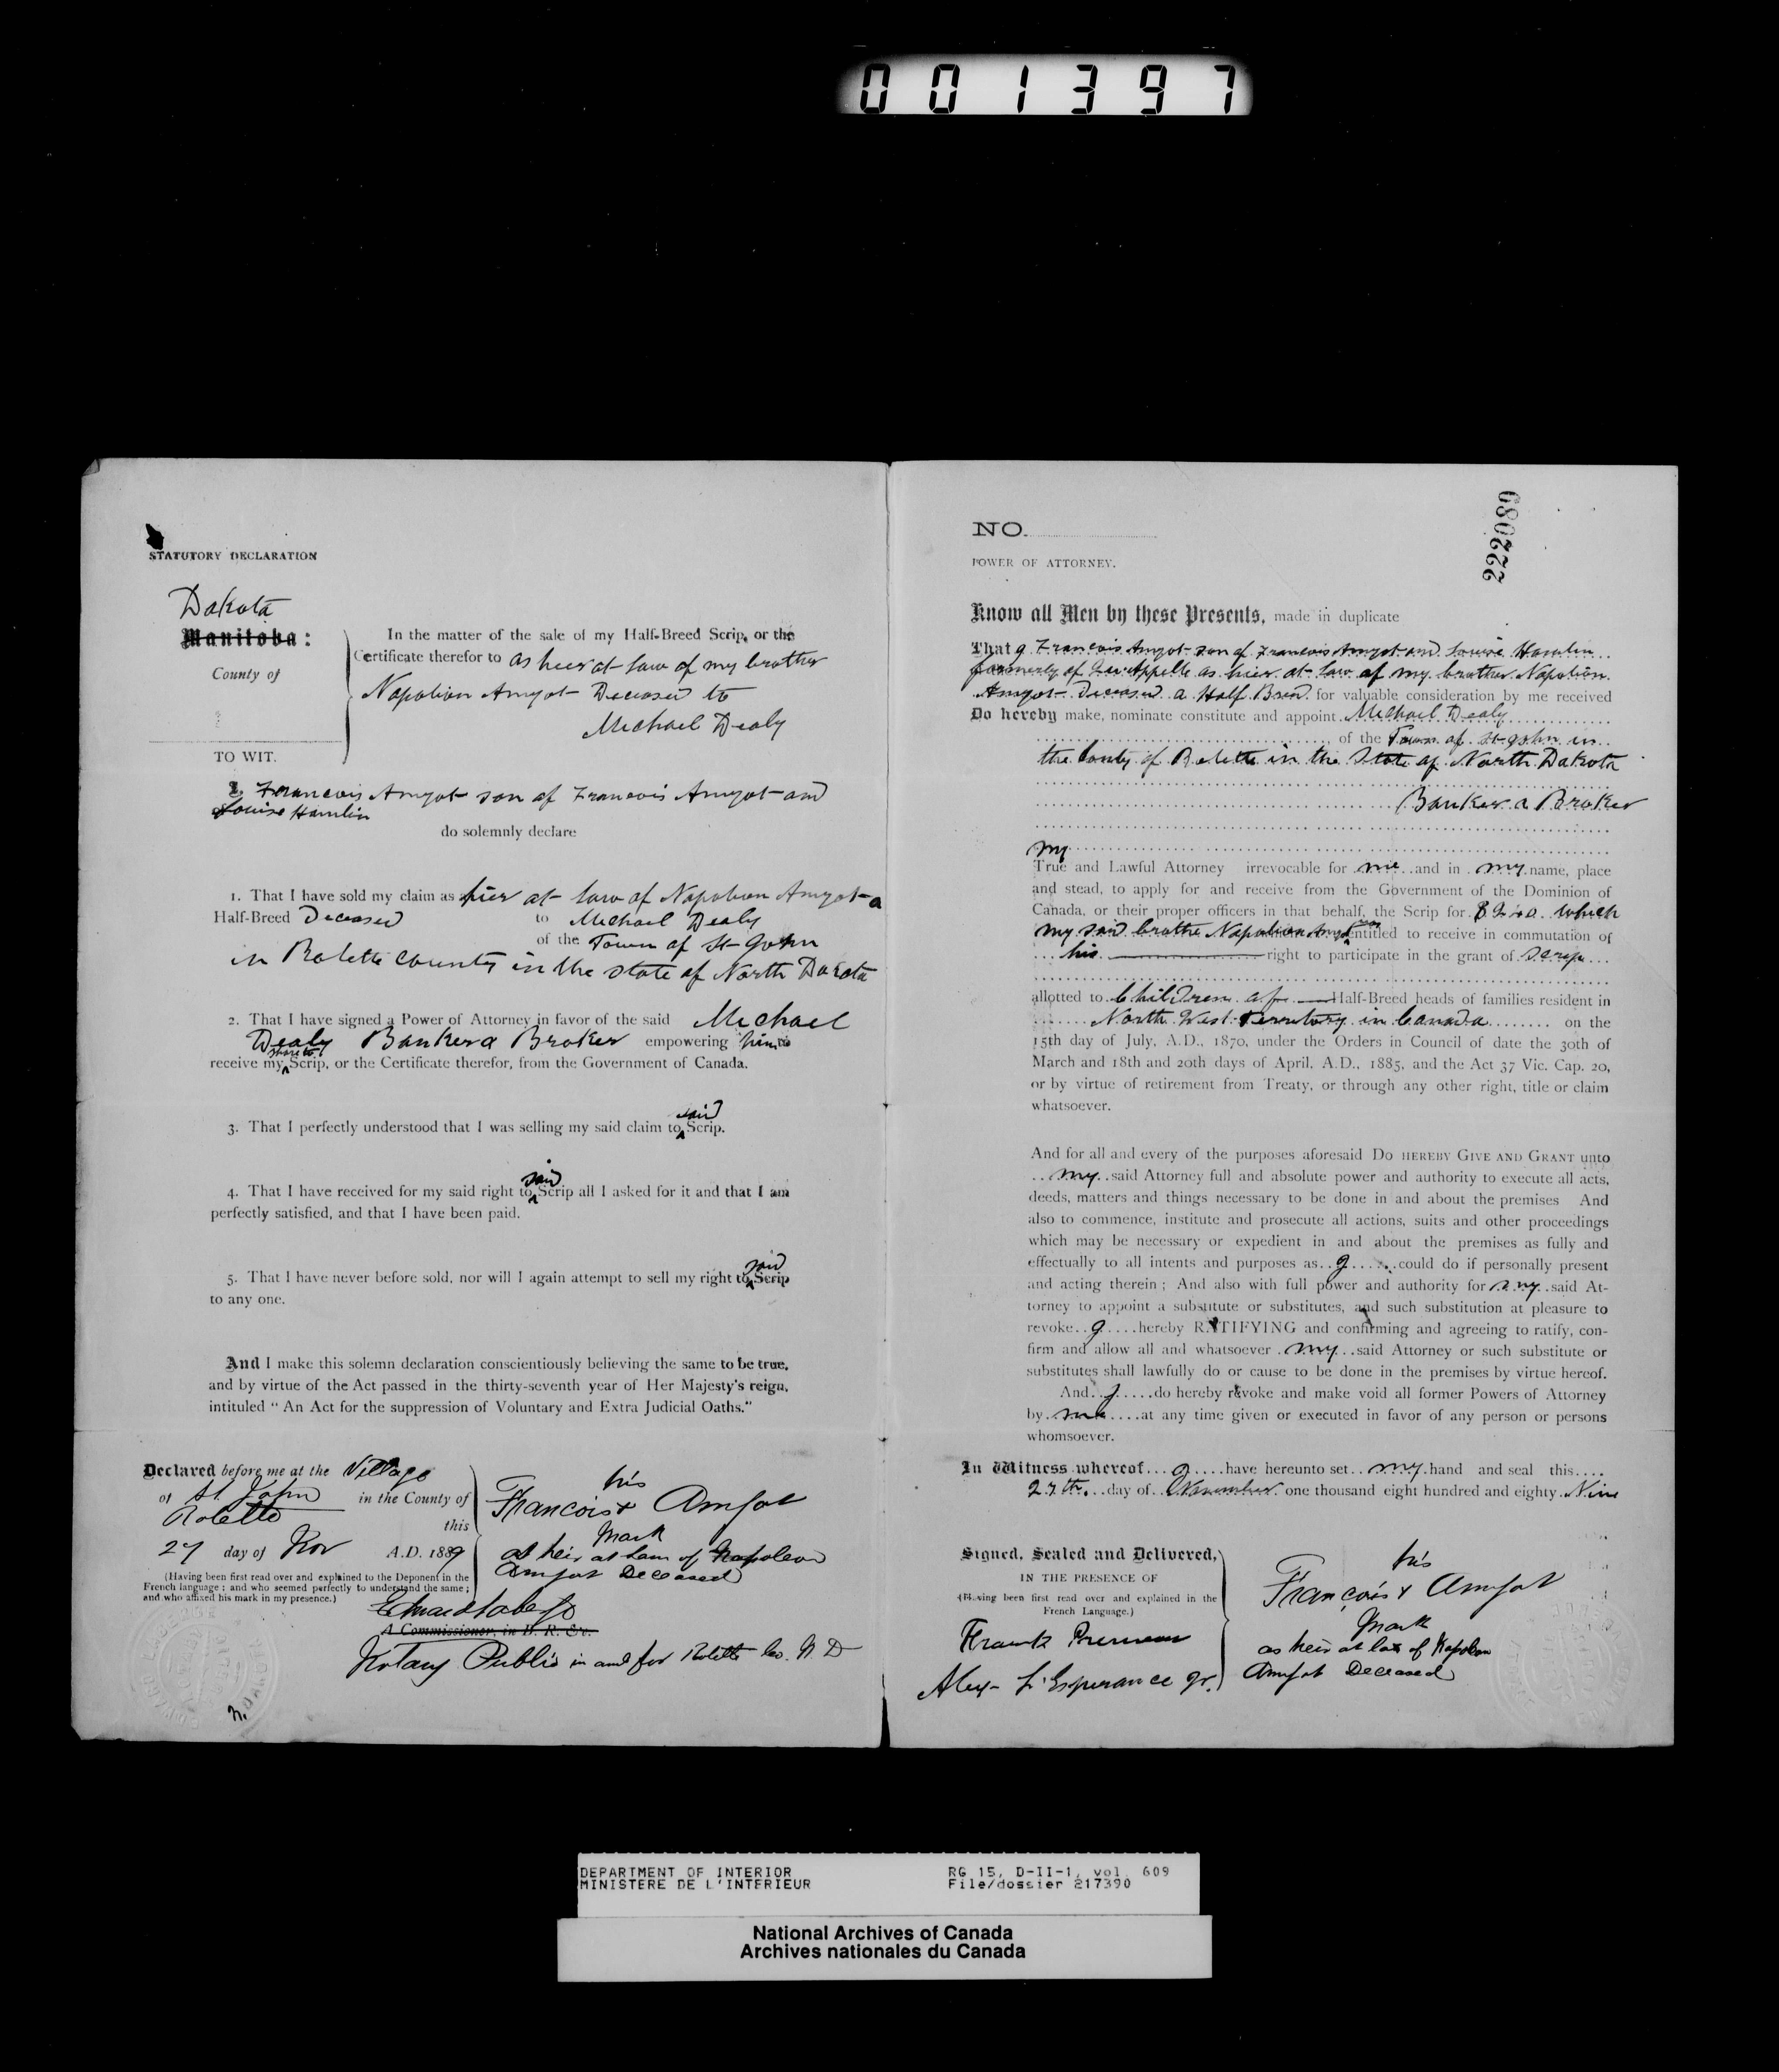 001397
STATUTORY DECLARATION
Dakota
Manitoba:
County of
TO WIT.
In the matter of the sale of my Half-Breed Scrip, or the
Certificate therefor to as hier at law of my brother
Napolion Amyot Deceased to
Michael Dealy
I, Francois Amyot son of Francois Amyot and
Louise Hamlin
do solemnly declare
1. That I have sold my claim as hier at law of Napolion Amyot a
Half-Breed Deceased to Michael Dealy
of the Town of St John
in Rolette County in the state of North Dakota
2. That I have signed a Power of Attorney in favor of the said Michael
Dealy Banker a Broker empowering him to
share to
receive my Scrip, or the Certificate therefor, from the Government of Canada.
said
3. That I perfectly understood that I was selling my said claim to Scrip.
said
4. That I have received for my said right to Scrip all I asked for it and that I am
perfectly satisfied, and that I have been paid.
said
5. That I have never before sold, nor will I again attempt to sell my right to Scrip
to any one.
And I make this solemn declaration conscientiously believing the same to be true,
and by virtue of the Act passed in the thirty-seventh year of Her Majesty's reign,
intituled "An Act for the suppression of Voluntary and Extra Judicial Oaths."
Declared before me at the Village
of St. John in the County of
Rolette this
27 day of Nov A.D. 1889
(Having been first read over and explained to the Deponent in the
French language; and who seemed perfectly to understand the same;
and who affixed his mark in my presence.)
his
Francois x Amyot
Mark
as heir at law of Napoleon
Amyot Deceased
A Commissioner, in B. R. &c.
Notary Public in and for Rolette Co. N. D
NO.
222089
POWER OF ATTORNEY.
Know all Men by these Presents, made in duplicate
That I Francois Amyot son of Francois Amyot and Louise Hamlin
formerly of Qu'Appelle as hier at law of my brother Napolion
Amyot deceased a Half Breed for valuable consideration by me received
Do hereby make, nominate constitute and appoint Michael Dealy
of the Town of St John in
the County of Rolette in the State of North Dakota
Banker a Broker
my
True and Lawful Attorney irrevocable for me and in my name, place
and stead, to apply for and receive from the Government of the Dominion of
Canada, or their proper officers in that behalf, the Scrip for $240 which
my said brothe Napolion Amyot was entitled to receive in commutation of
his right to participate in the grant of Scrip
allotted to Children of Half-Breed heads of families resident in
North West Territory in Canada on the
15th day of July, A.D., 1870, under the Orders in Council of date the 30th of
March and 18th and 20th days of April, A.D., 1885, and the Act 37 Vic. Cap. 20,
or by virtue of retirement from Treaty, or through any other right, title or claim
whatsoever.
And for all and every of the purposes aforesaid DO HEREBY GIVE AND GRANT unto
my said Attorney full and absolute power and authority to execute all acts,
deeds, matters and things necessary to be done in and about the premises And
also to commence, institute and prosecute all actions, suits and other proceedings
which may be necessary or expedient in and about the premises as fully and
effectually to all intents and purposes as I could do if personally present
and acting therein; And also with full power and authority for my said At-
torney to appoint a substitute or substitutes, and such substitution at pleasure to
revoke I hereby RATIFYING and confirming and agreeing to ratify, con-
firm and allow all and whatsoever my said Attorney or such substitute or
substitutes shall lawfully do or cause to be done in the premises by virtue hereof.
And I do hereby revoke and make void all former Powers of Attorney
by me at any time given or executed in favor of any person or persons
whomsoever.
In Witness whereof I have hereunto set my hand and seal this
27th day of November one thousand eight hundred and eighty Nine
Signed, Sealed and Delivered,
IN THE PRESENCE OF
(Having been first read over and explained in the
French Language.)
Frank
Alex L'Esperance Jr.
his
François x Amyot
Mark
as heir at law of Napoleon
Amyot Deceased
DEPARTMENT OF INTERIOR
MINISTERE DE L'INTERIEUR
RG 15, D-II-1, vol. 609
File/dossier 217390
National Archives of Canada
Archives nationales du Canada